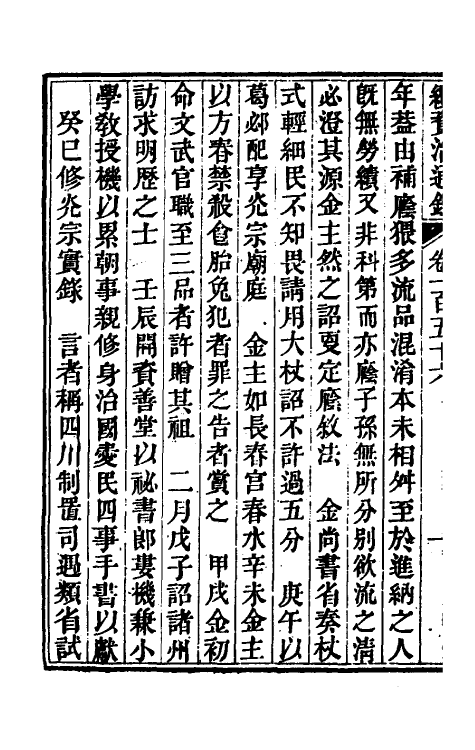 續資治通鑑 卷一百五十六 一
年蓋由補廕猥多流品混淆本末相舛至於進納之人
既無勞績又非科第而亦廕子孫無所分別欲流之清
必澄其源金主然之詔更定廕敘法　金尚書省奏杖
式輕細民不知畏請用大杖詔不許過五分　庚午以
葛邲配享光宗廟庭　金主如長春宮春水辛未金主
以方春禁殺含胎兔犯者罪之告者賞之　甲戌金初
命文武官職至三品者許贈其祖　二月戊子詔諸州
訪求明歷之士　壬辰開資善堂以祕書郎婁機兼小
學敎授機以累朝事親修身治國愛民四事手書以獻
癸巳修光宗實錄　言者稱四川制置司遇類省試